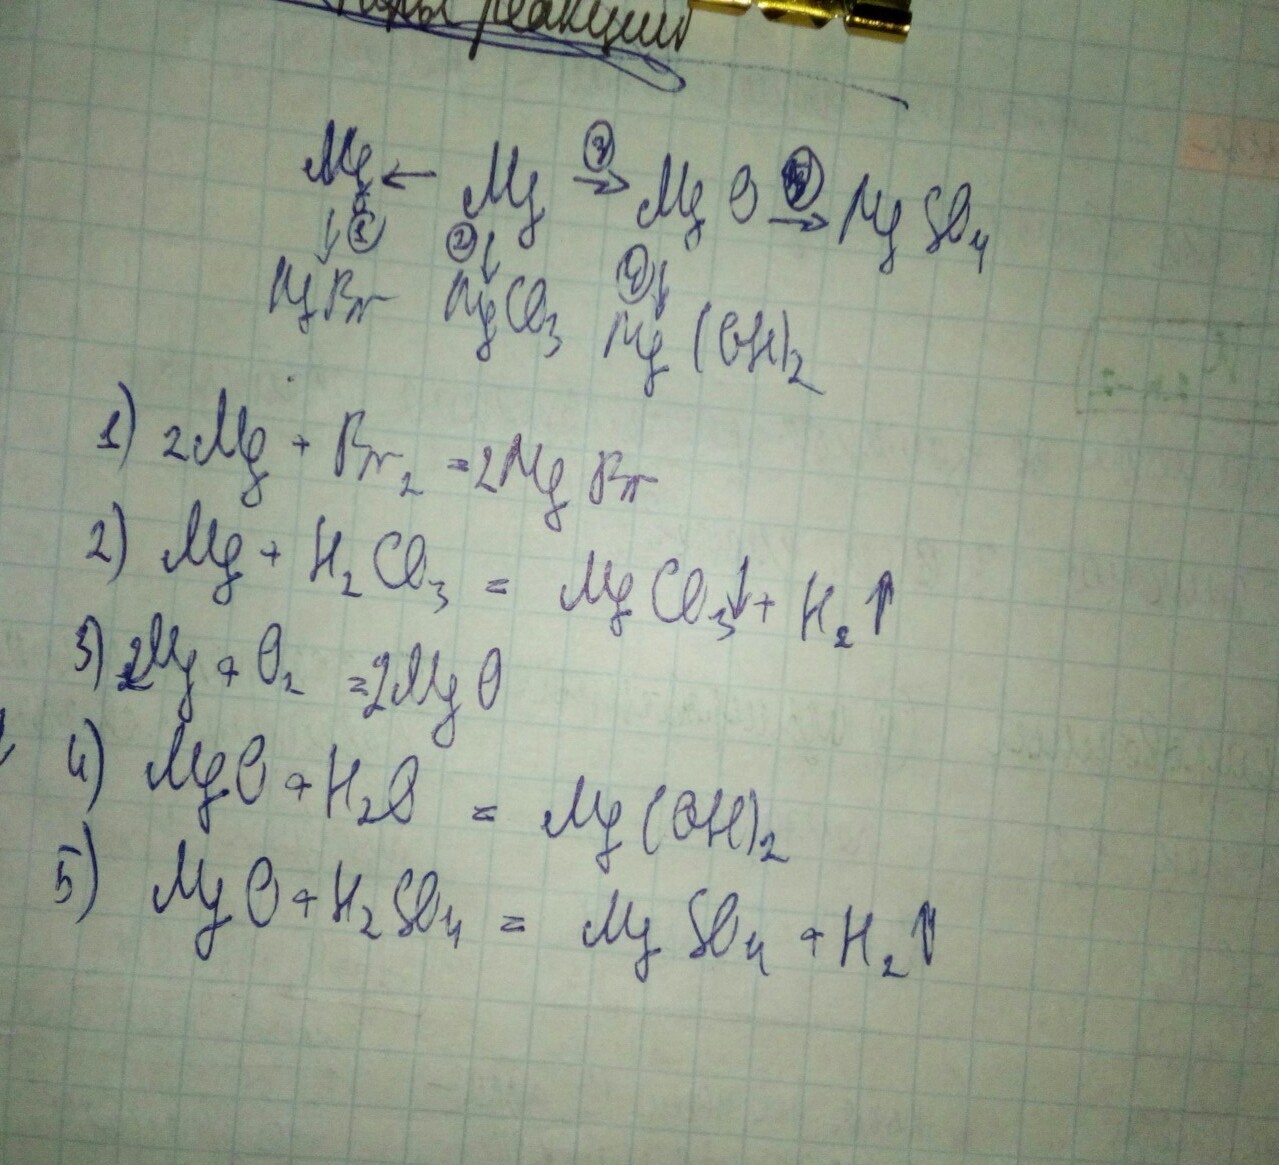 реакции
Mg ← Mg ③→ MgO → MgSO₄
↓① ②↓ ④↓
MgBr MgCO₃ Mg(OH)₂
1) 2Mg + Br₂ = 2MgBr
2) Mg + H₂CO₃ = MgCO₃↓ + H₂↑
3) 2Mg + O₂ = 2MgO
4) MgO + H₂O = Mg(OH)₂
5) MgO + H₂SO₄ = MgSO₄ + H₂↑